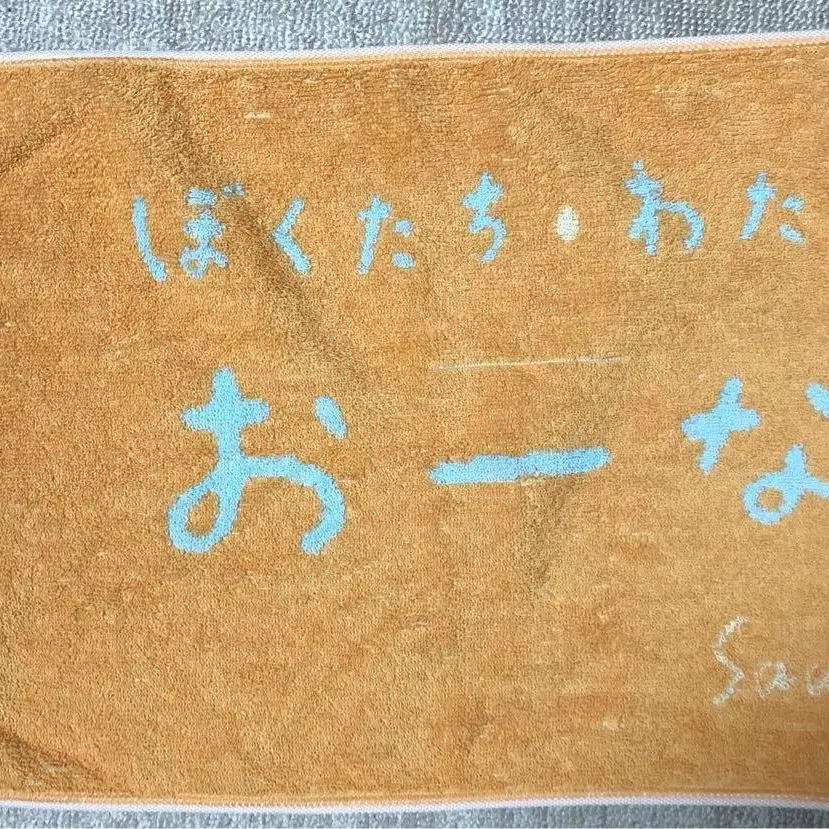 ぼくたち・わた
おーな